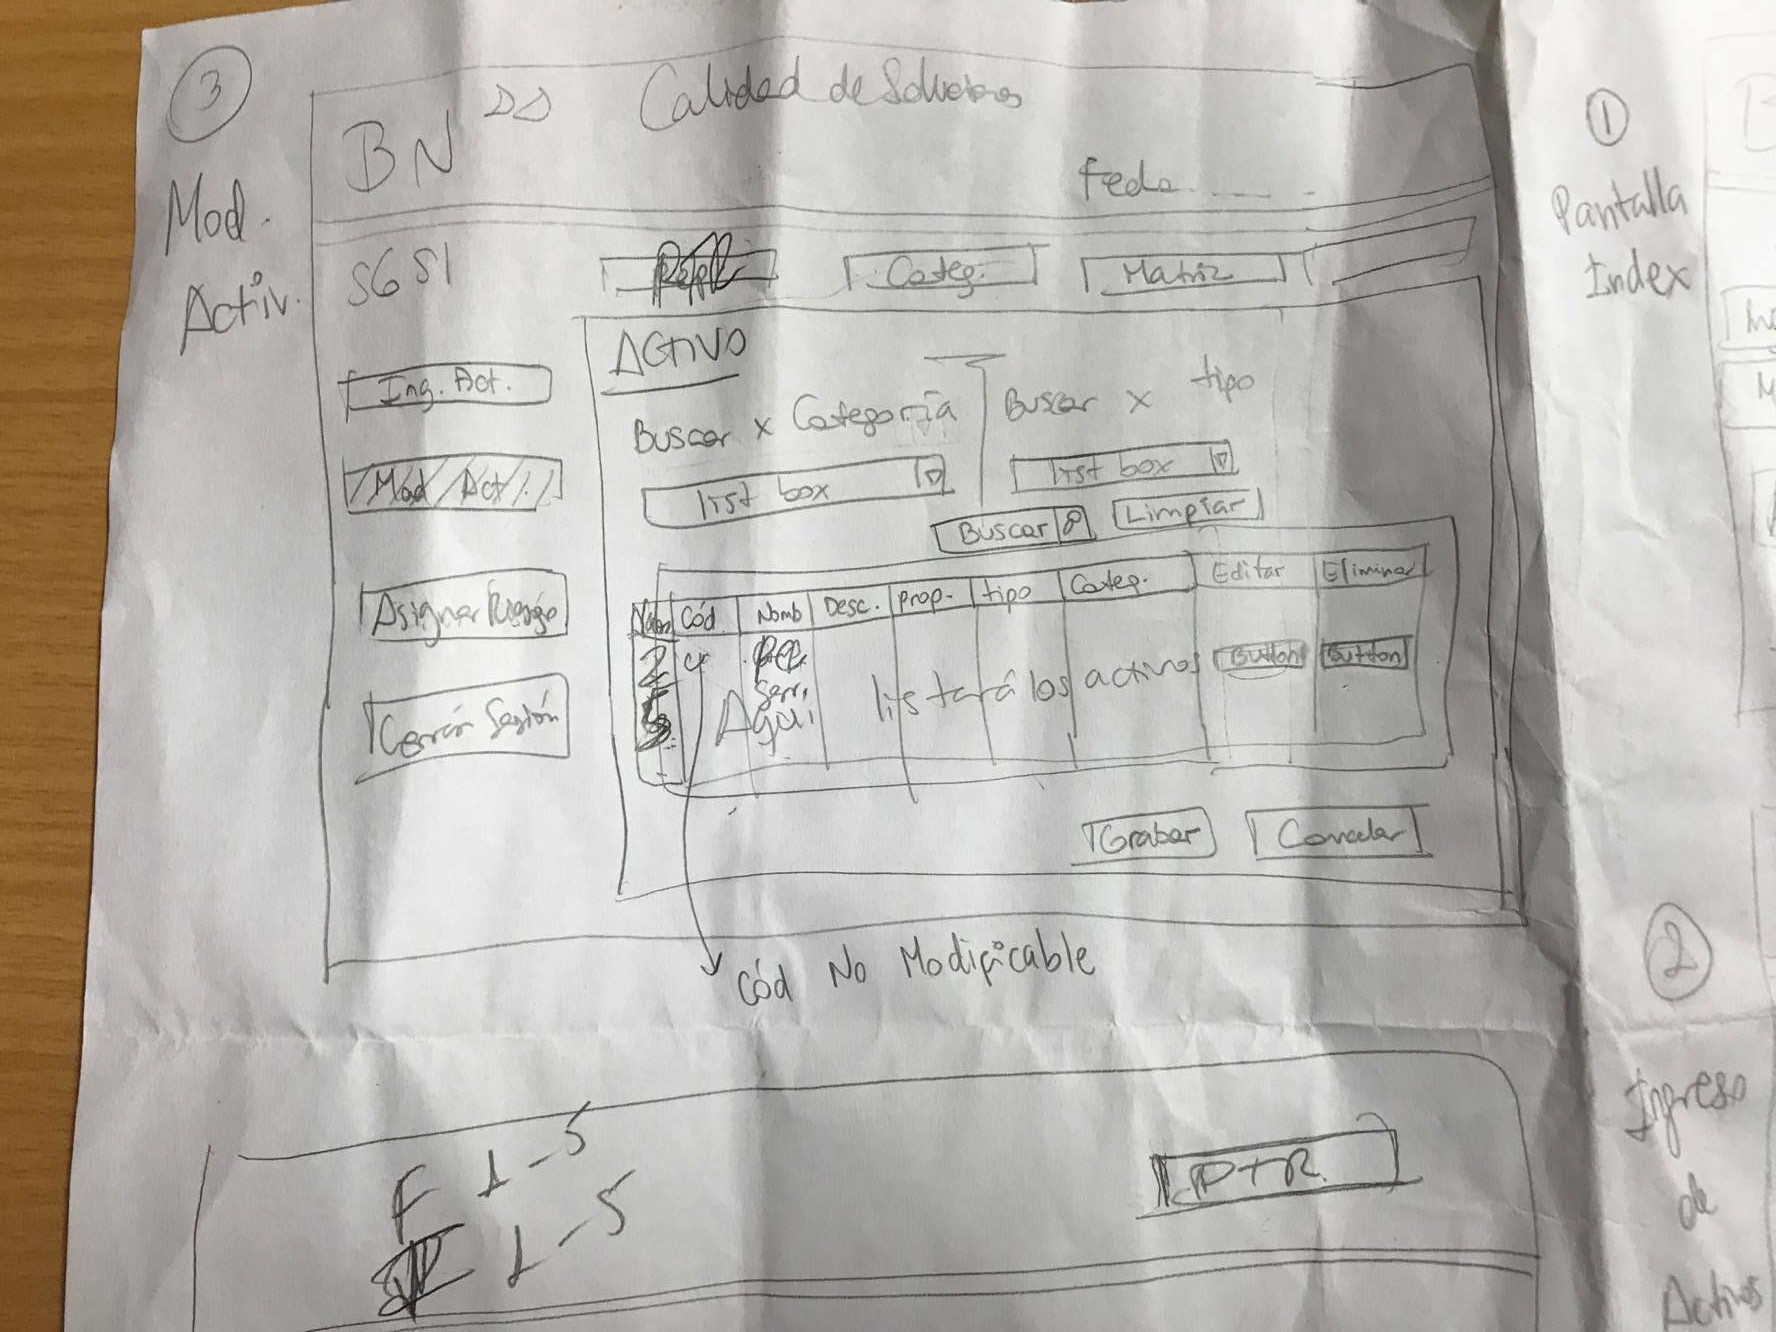 3
Mod.
Activ.
BN
Calidad de Soluciones
Fecha
SGSI
Categ.
Matriz
Ing. Act.
Mod Act.
Asignar Riesgo
Cerrar Sesión
ACTIVO
Buscar x Categoría
Buscar x tipo
list box
list box
Buscar
Limpiar
Cód Nomb Desc. Prop. tipo Categ. Editar Eliminar
2 4
Serv.
Aquí listará los activos
Button Button
Grabar Cancelar
Cód No Modificable
F 1-5
1-5
PTR
1
Pantalla
Index
2
Ingreso
de
Activos